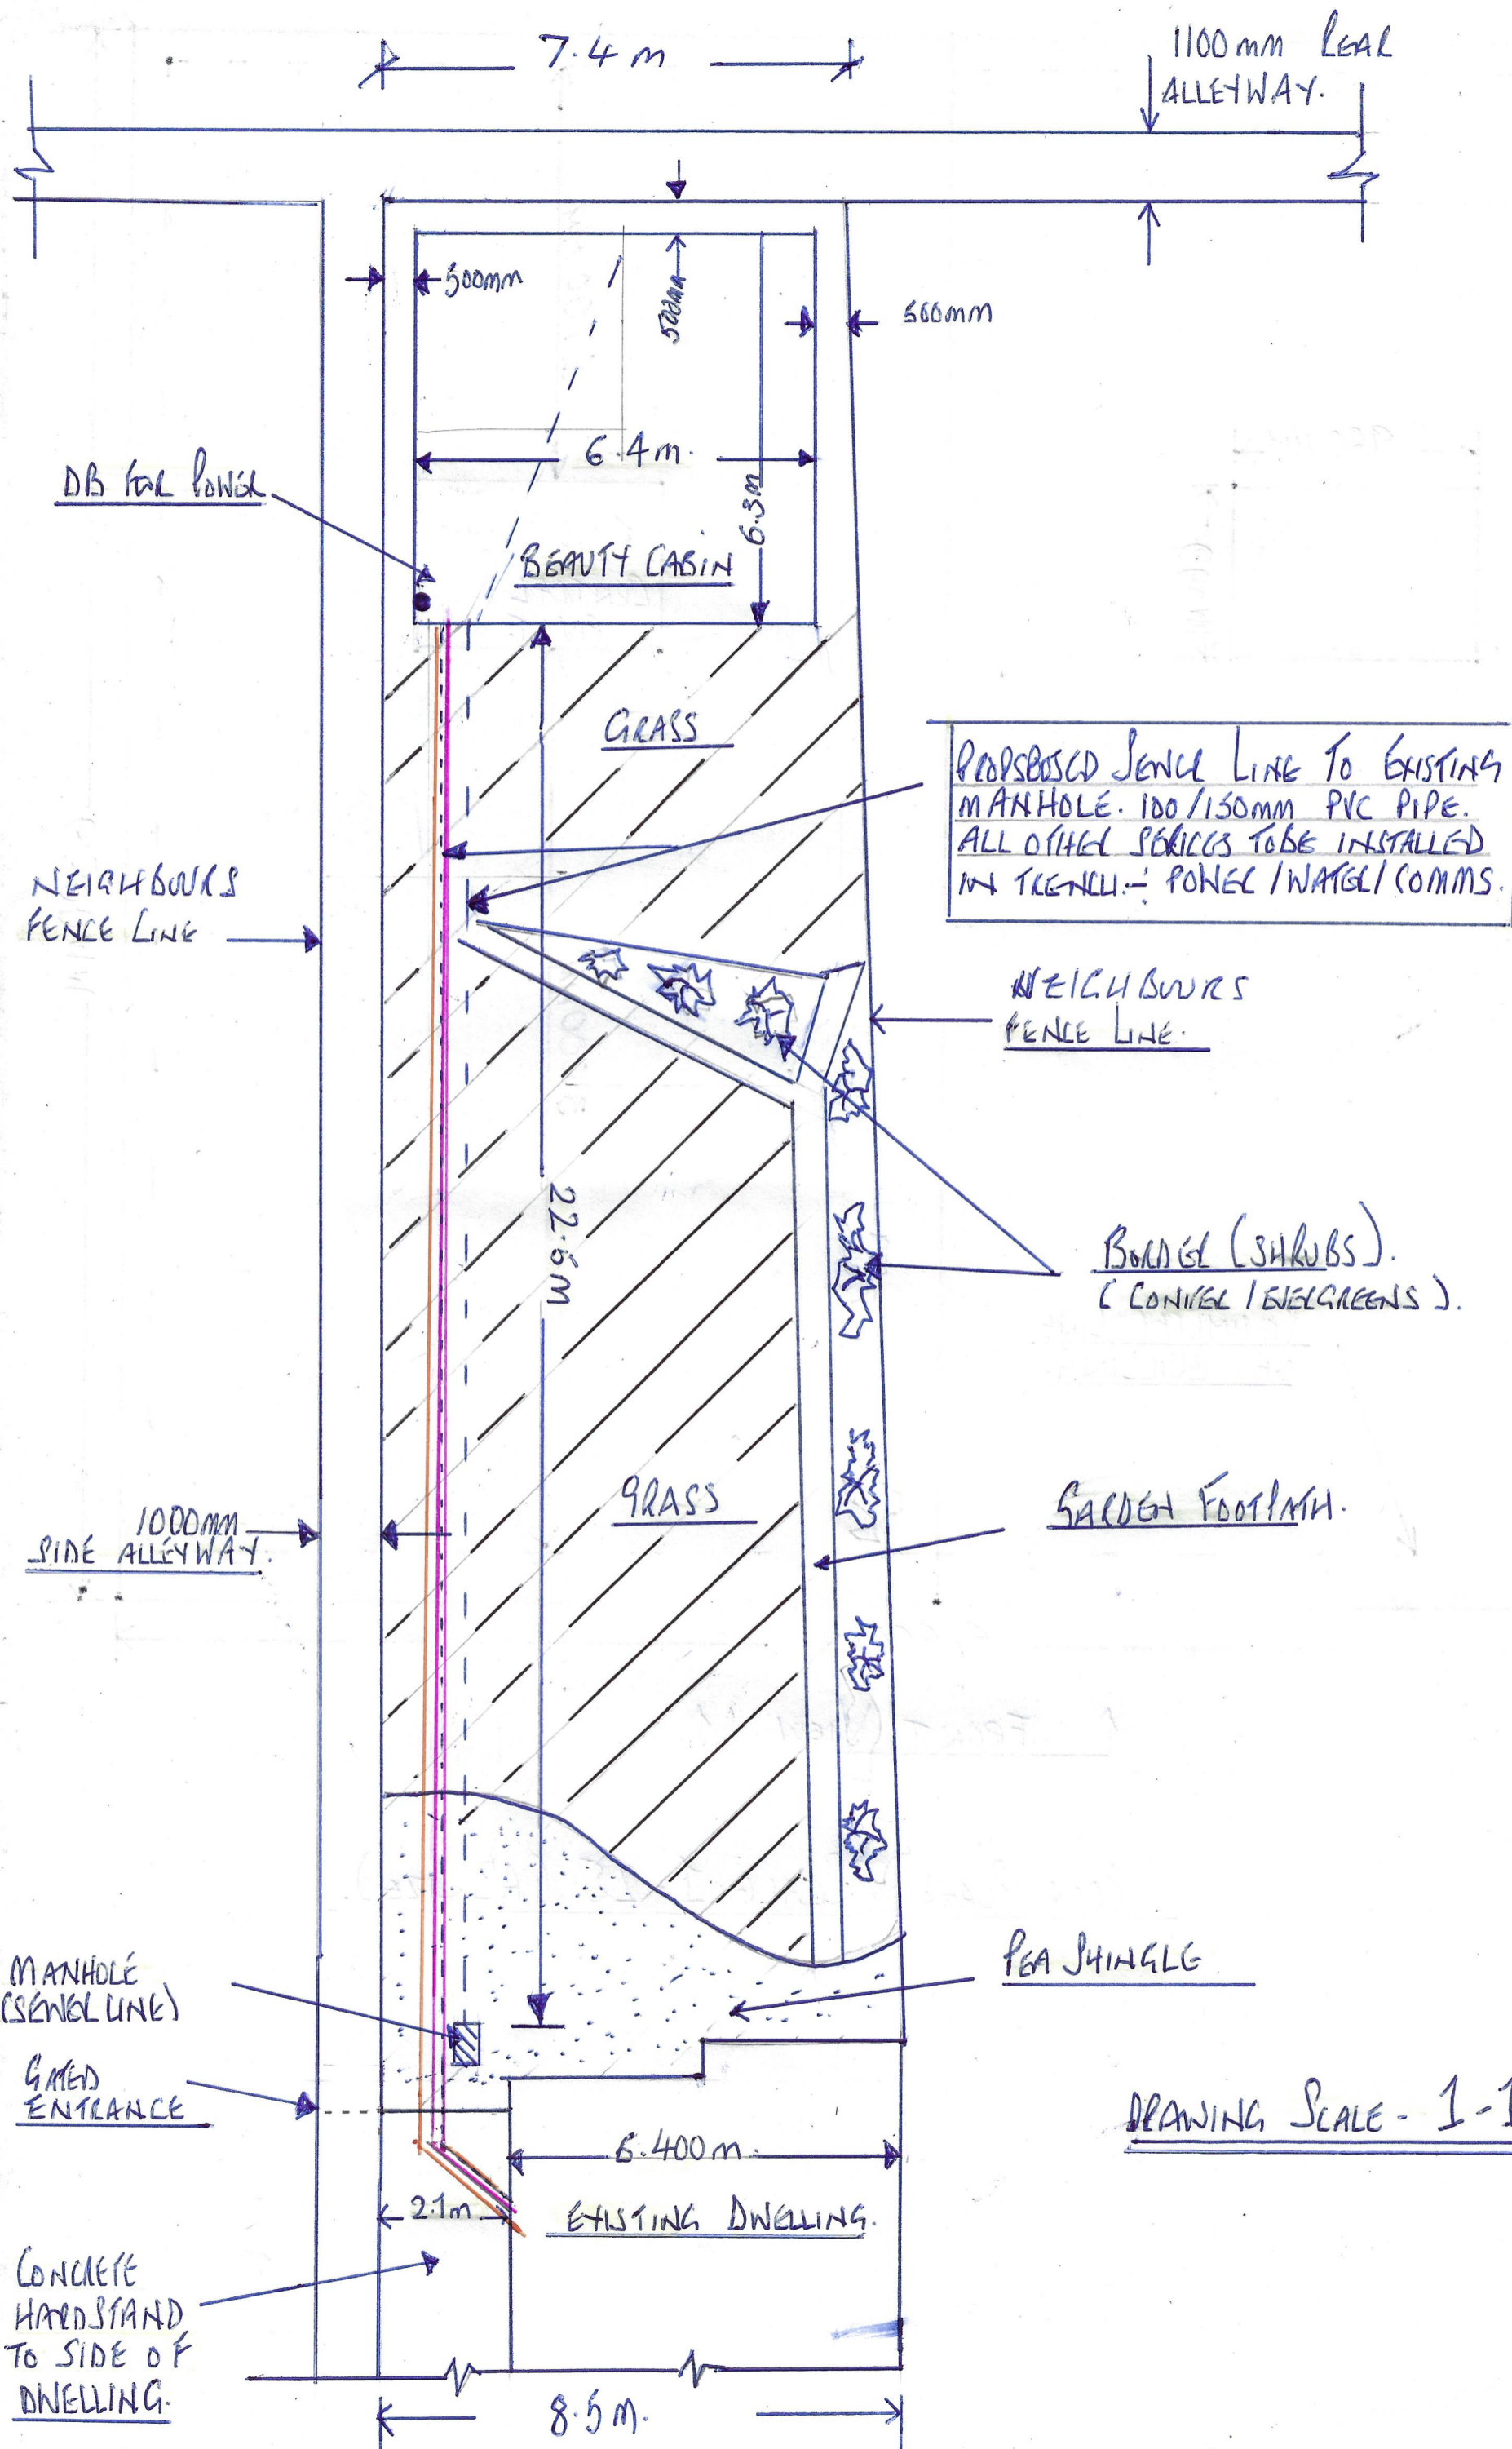 7.4 m
1100mm REAR
ALLEYWAY.
500mm
500mm
500mm
6.4 m.
6.3m
DB FOR POWER
BEAUTY CABIN
GRASS
PROPSBOSED SEWER LINE TO EXISTING
MANHOLE. 100/150mm PVC PIPE.
ALL OTHER SERICES TO BE INSTALLED
IN TRENCH:- POWER/WATER/COMMS.
NEIGHBOURS
FENCE LINE
NEIGHBOURS
FENCE LINE.
22.6m
BORDER (SHRUBS).
(CONIFER/EVERGREENS).
GRASS
GARDEN FOOTPATH.
1000mm
SIDE ALLEYWAY.
MANHOLE
(SEWER LINE)
PEA SHINGLE
GATED
ENTRANCE
DRAWING SCALE - 1-1
6.400m.
2.1m
EXISTING DWELLING.
CONCRETE
HARDSTAND
TO SIDE OF
DWELLING.
8.5 m.